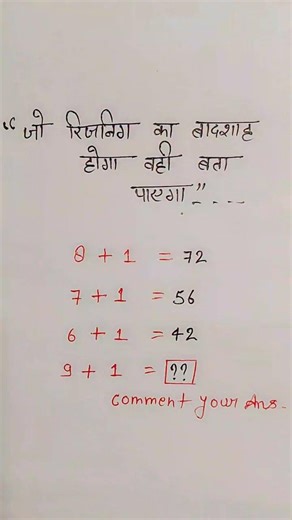 “जो रिजनिग का बादशाह
होगा वही बता
पाएगा”....
8 + 1 = 72
7 + 1 = 56
6 + 1 = 42
9 + 1 = ??
Comment your Ans.